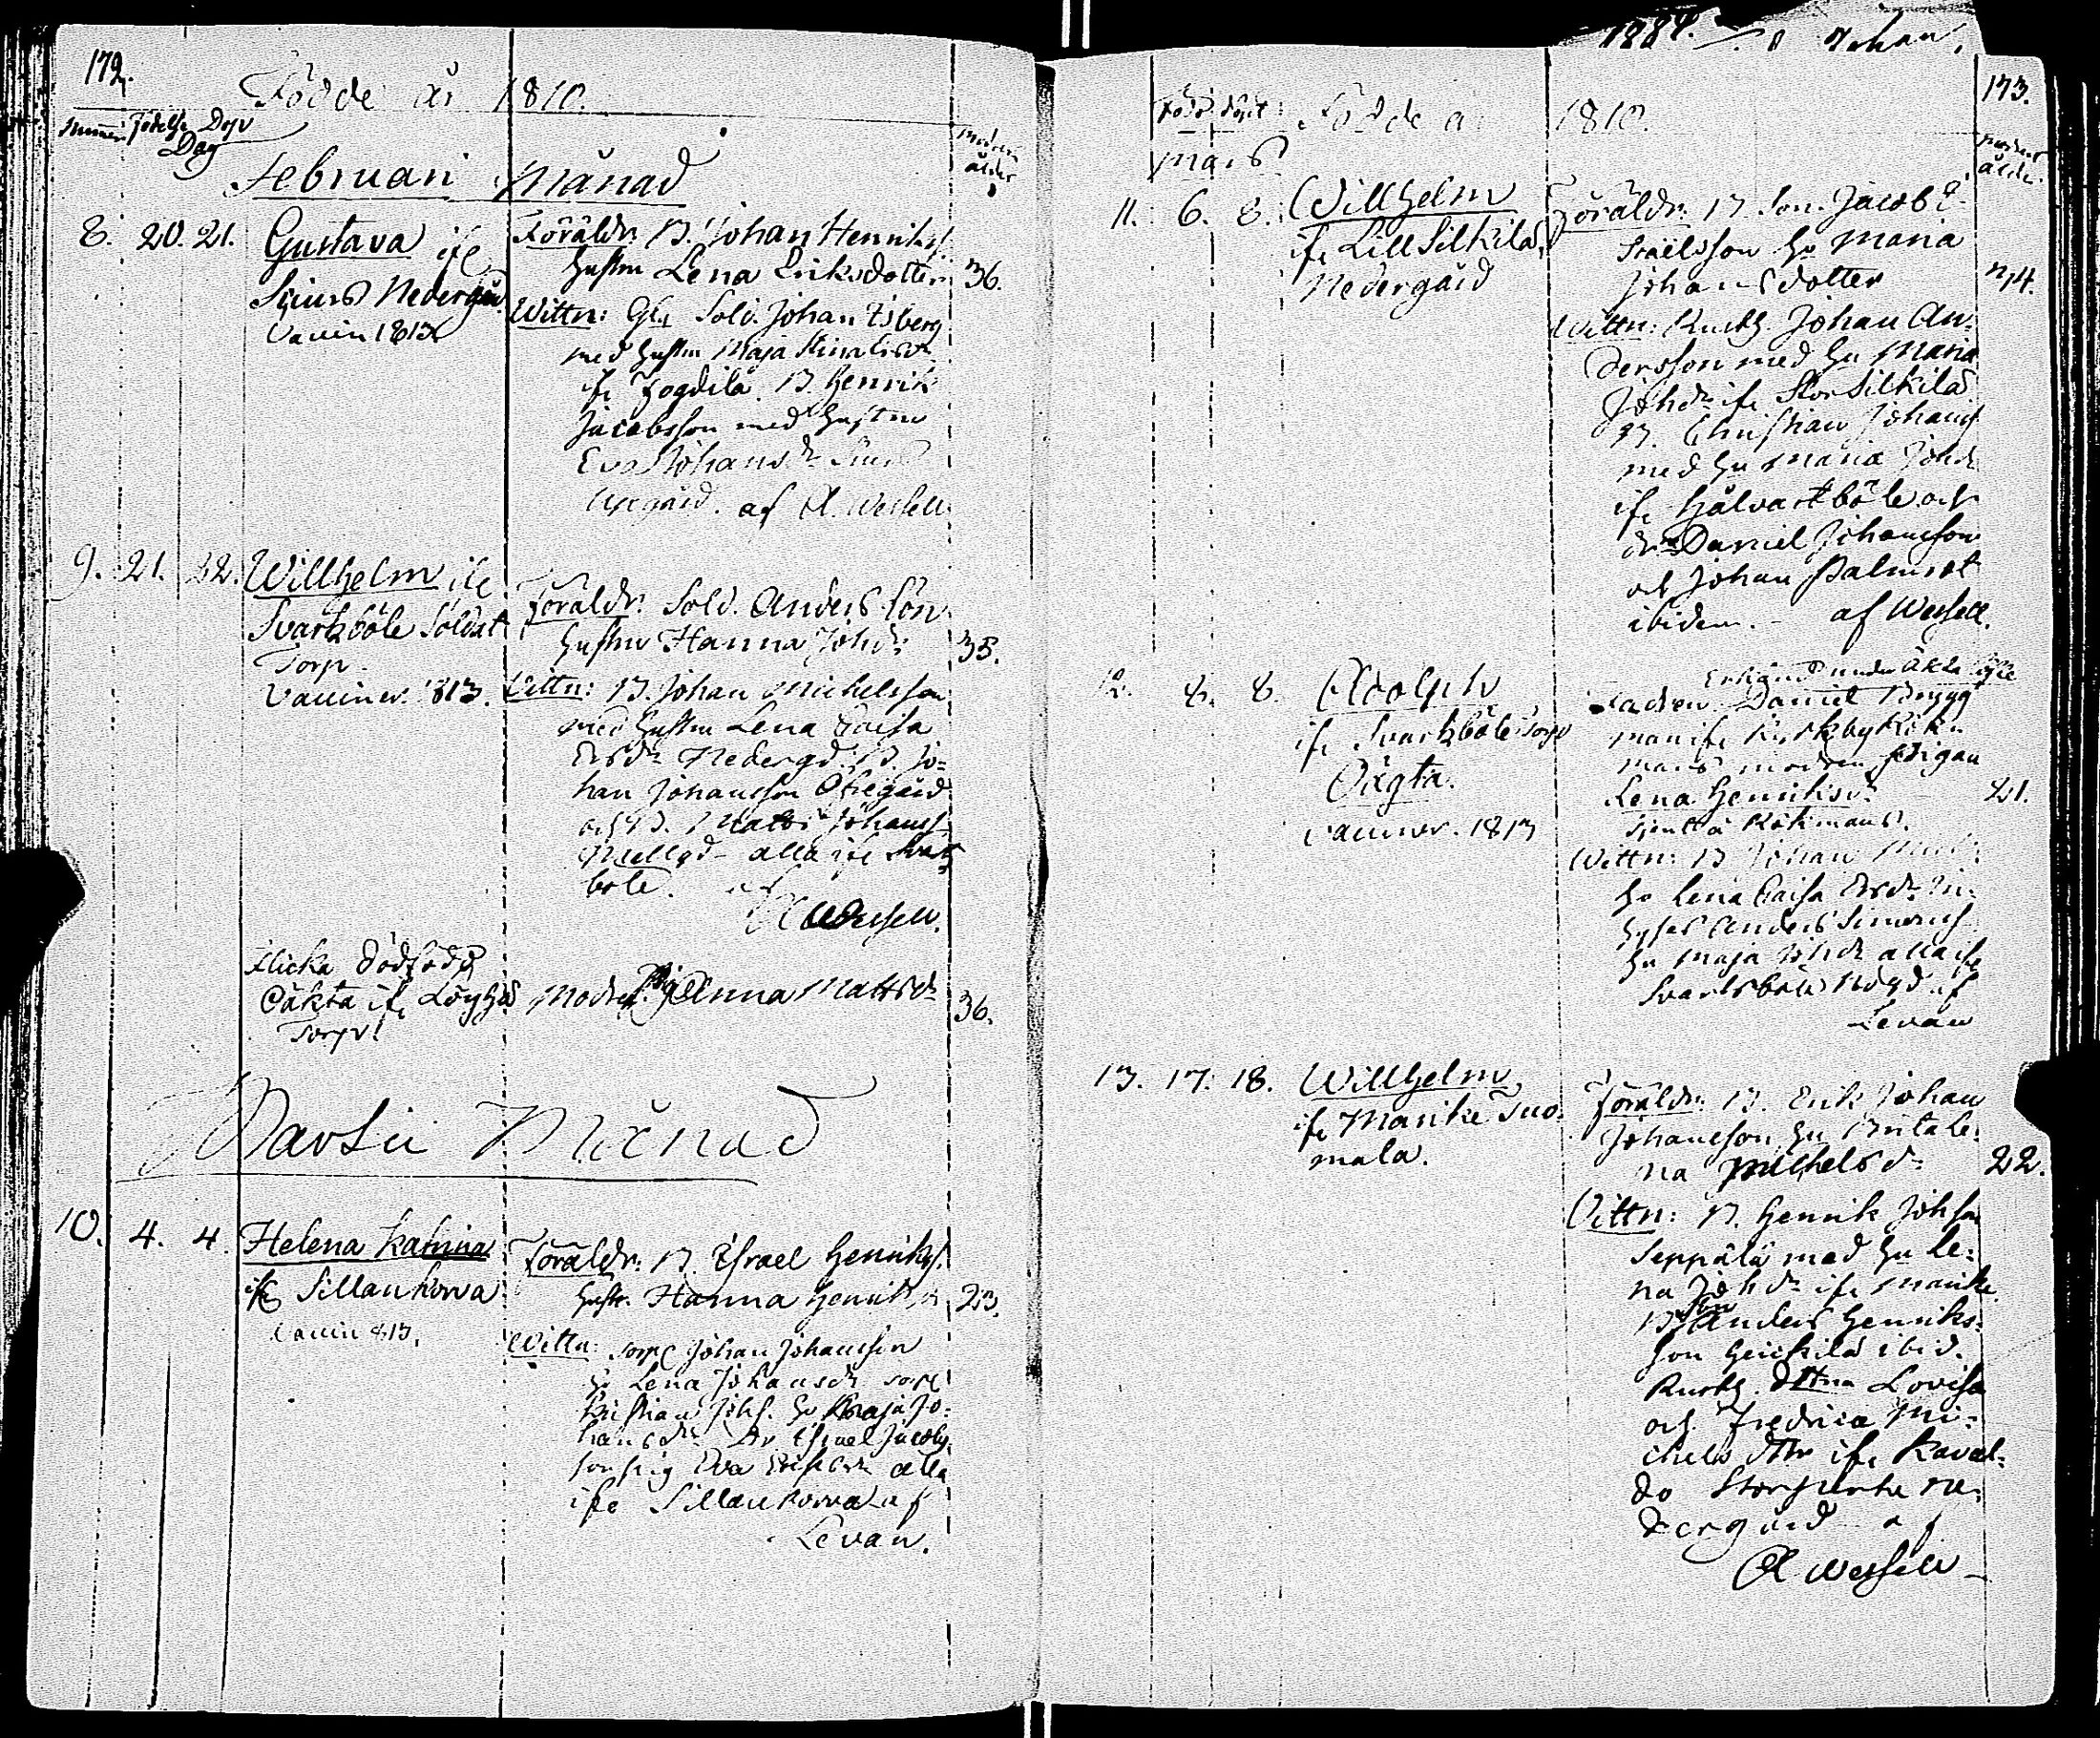 172.
Födde år 1810.
Födelse Döp
Dag
moderns
ålder
Februari Månad
8. 20. 21. Gustava ifr
Nedergård.
Vaccin 1813
Föräldr: B. Johan Henrikss.
hustru Lena Eriksdotter 36.
Wittn: Sold. Johan Isberg
med hustru Maja Stina
ifr Fogdila. B. Henrik
Jacobsson med hustru
Eva Johansdr
af A. Wessell
9. 21. 22. Willhelm ifr
Svartböle Soldat
Torp.
Vacciner. 1813.
Föräldr: Sold. Anders Lön
hustru Hanna Johdr 35.
Vittn: B. Johan Michelsson
med hustru Lena Caisa
Ersdr Nedergd. B. Jo-
han Johansson Öfregård
och B. Matts Johanss
Mellgd - alla ifr Svart
böle. af
A Wessell.
Flicka dödfödd
Oäkta ifr
Torp.
Modren Pig. Anna Mattsdr 36.
Martii Månad
10. 4. 4. Helena Katrina
ifr Sillankorva
Vaccin 813.
Föräldr: B. Israel Henrikss.
hustr. Hanna Henriksdr 23.
Wittn: torp. Johan Johansson
hu Lena Johansdr torp.
Christian Johs. hu Maja Jo-
hansdr Dr Israel Jacobs
son pig Eva alla
ifr Sillankorva af
Levan.
1884. Johan.
173.
Född döpt Födde år 1810.
Mars
moderns
ålder.
11. 6. 8. Willhelm
ifr Lill Silkilas
Nedergård
Föräldr: B. Son. Jacob E-
sraelsson hu Maria
Johansdotter 24.
Wittn: Rusth. Johan An-
dersson med hu Maria
Johdr ifr Stor Silkilas
B. Christian Johans
med hu Maria Johdr
ifr Hålvastböle och
dr Daniel Johansson
och Johan Palmrot
ibidem. - af Wessell.
12. 8. 8. Adolph
ifr Svartböle torp
Oägta.
vacciner. 1813
Erkänd under äkta
Fadren Daniel Brygg
man ifr Kyrkby Kök-
mans modren pigan
Lena Henriksdr 21.
tjent å Kökmans.
Wittn: B Johan Mich.
hu Lena Caisa Ersdr In-
hyses Anders Simonss
hu Maja Johdr alla ifr
Svartsböle Nedgd af
Levan
13. 17. 18. Willhelm
ifr Marike Suo-
mala.
Föräldr: B. Erik Johan
Johansson hu Brita Le-
na Michelsdr 22.
Vittn: B. Henrik Johsson
Seppälä med hu Le-
na Johdr ifr Marike
B Son Anders Henriks-
son ibid.
Rusth. Dttrna Lovisa
och Fredrica Mi-
chels dttr ifr Kaval-
do Storpertu ne-
dergård af
A Wessell